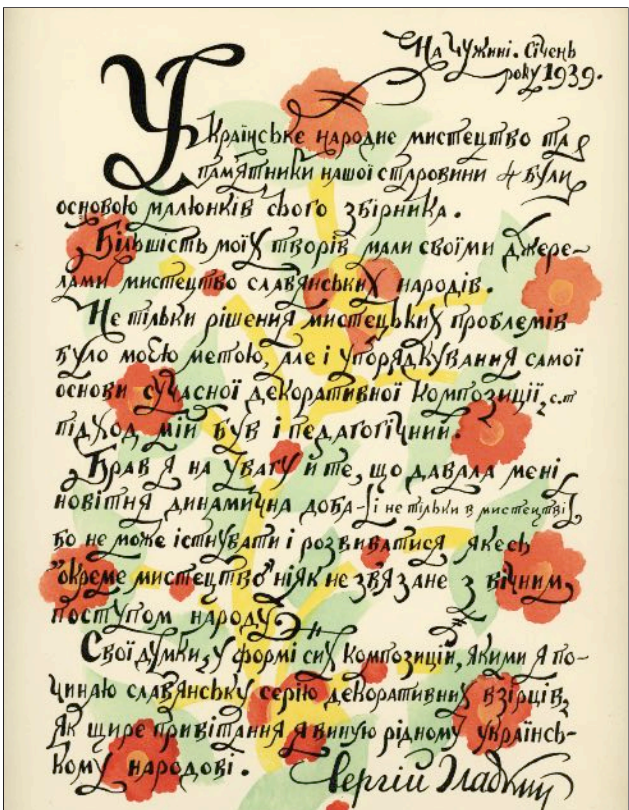 На Чужині. Січень
року 1939.
Українське народне мистецтво та
памятники нашої старовини були
основою малюнків сього збірника.
Більшість моїх творів мали своїми джере-
лами мистецтво славянських народів.
Не тільки рішення мистецьких проблемів
було моєю метою, але і упорядкування самої
основи сучасної декоративної композиції, с.т
підход мій був і педагогічний.
Брав я на увагу й те, що давала мені
новітня динамична доба - (і не тільки в мистецтві)
бо не може істнувати і розвиватися якесь
"окреме мистецтво" ніяк не звязане з вічним
поступом народу.
Свої думки, у формі сих композицій, якими я по-
чинаю славянську серію декоративних взірців,
як щире привітання я виную рідному українсь-
кому народові.
Сергій Гладкий